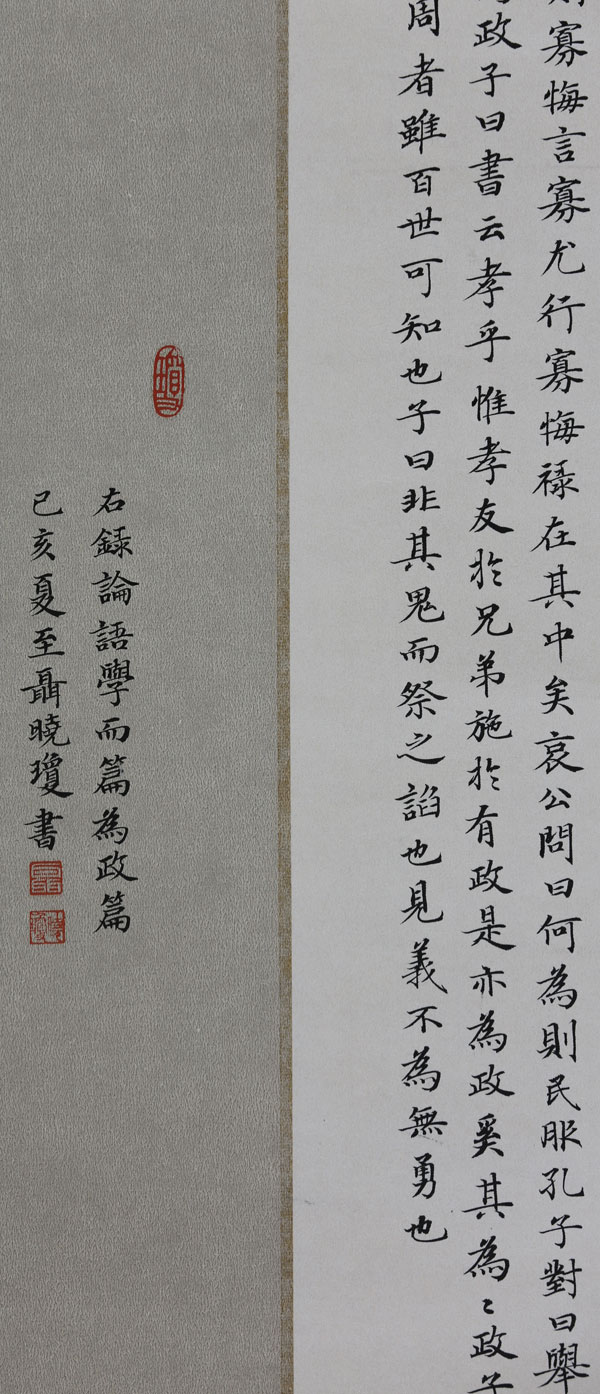 寡悔言寡尤行寡悔祿在其中矣哀公問曰何為則民服孔子對曰舉
政子曰書云孝乎惟孝友於兄弟施於有政是亦為政奚其為〻政子
周者雖百世可知也子曰非其鬼而祭之諂也見義不為無勇也
右錄論語學而篇為政篇
己亥夏至聶曉瓊書